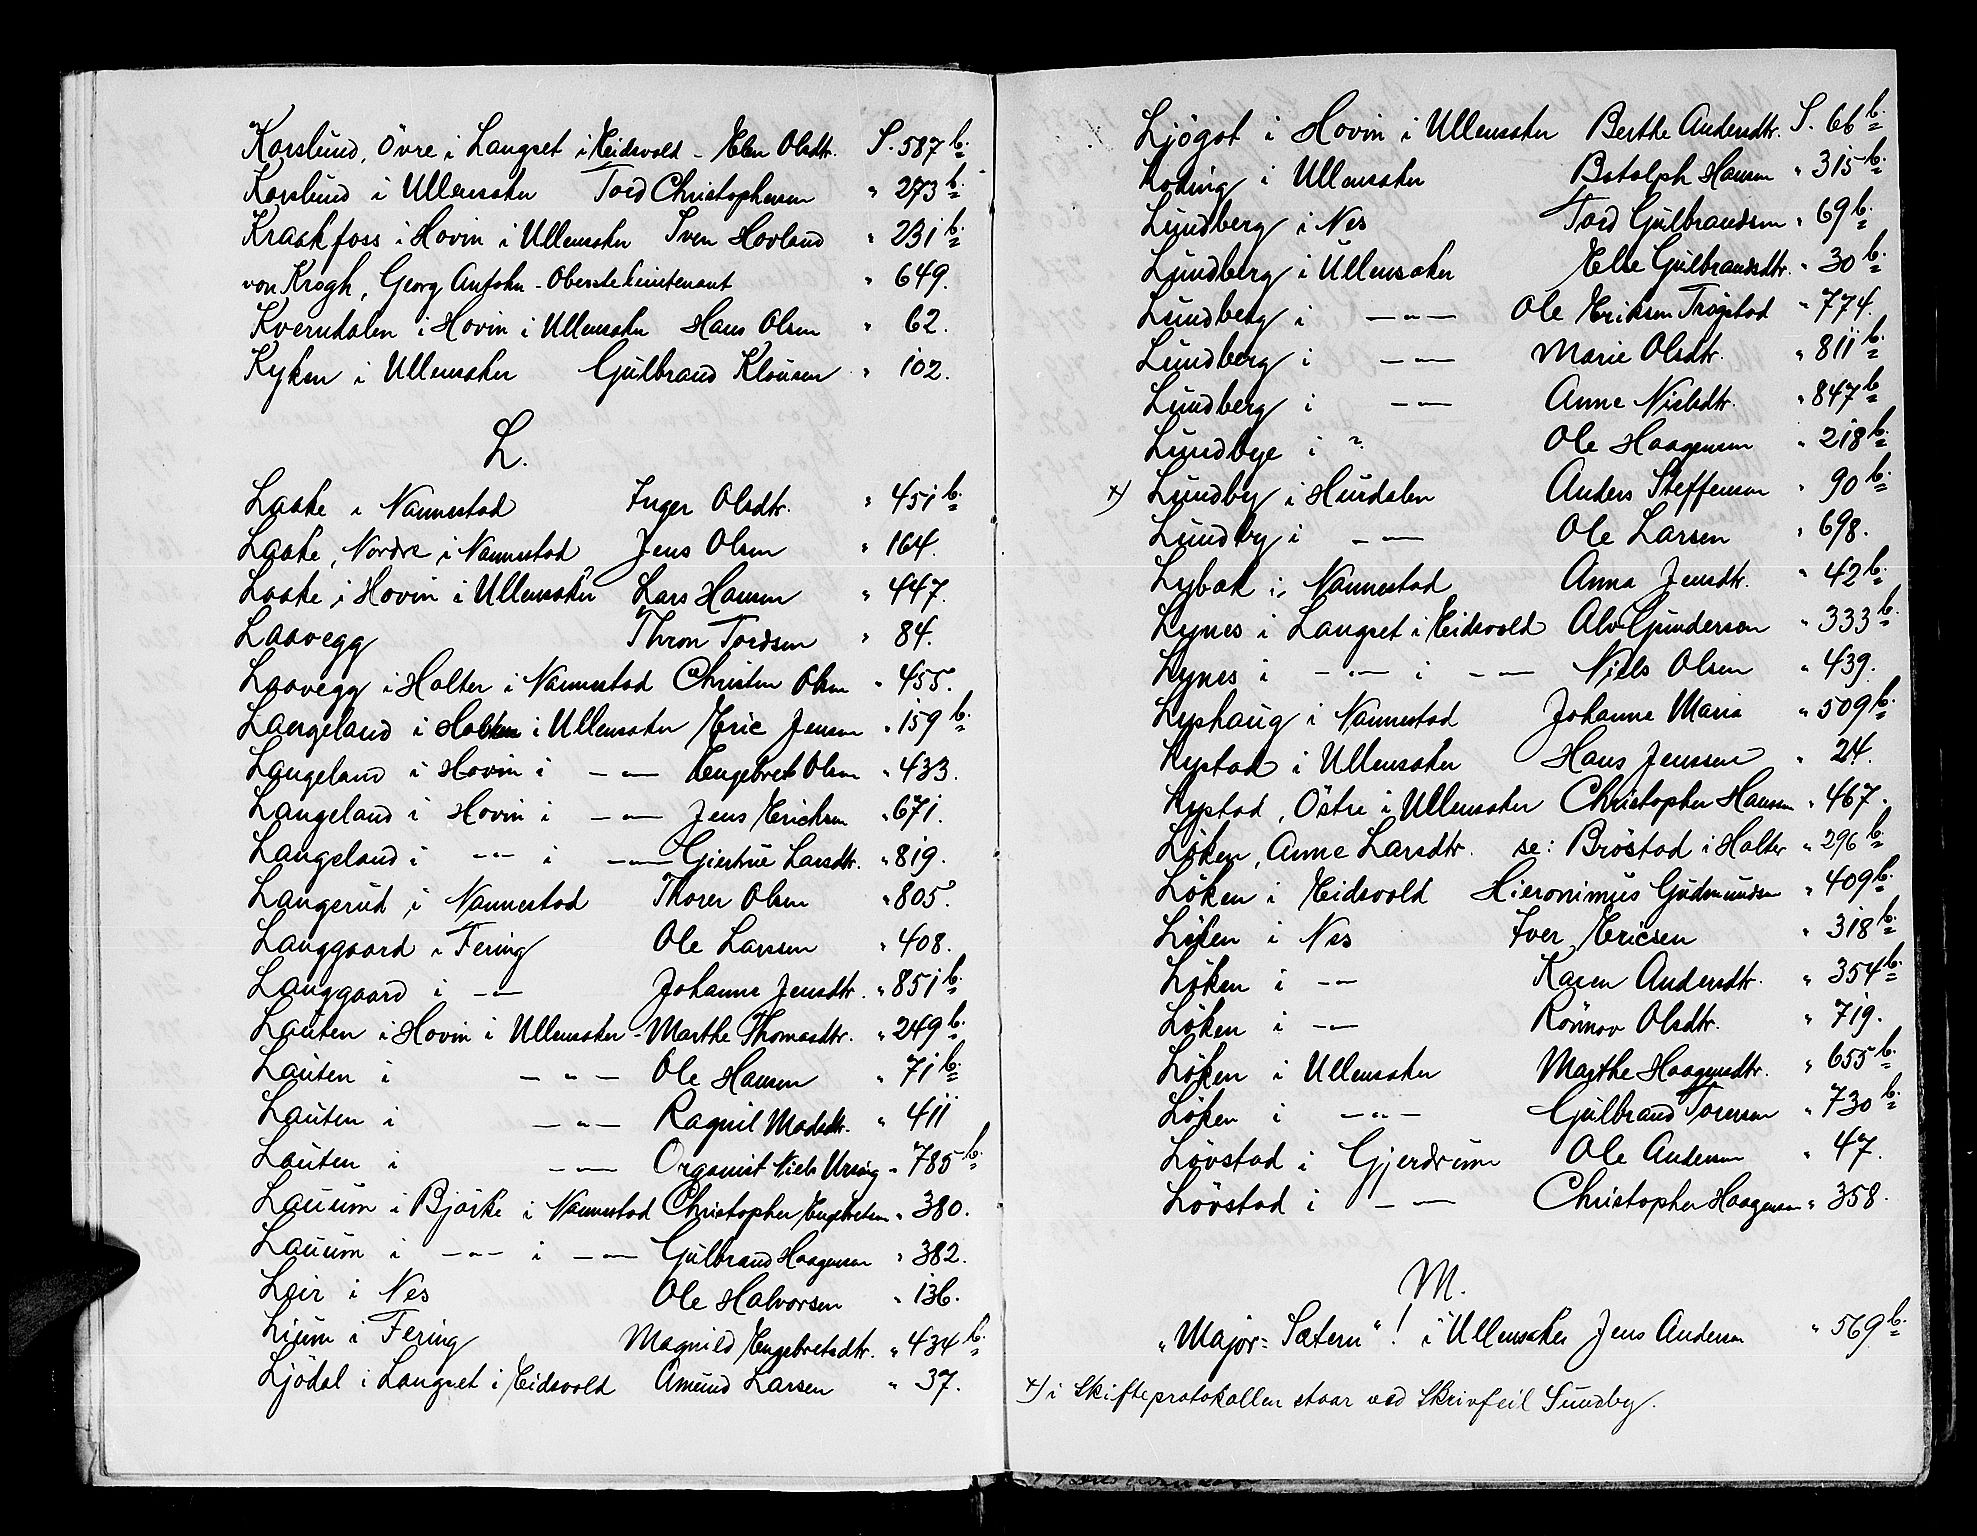 Korslund, Övre i Langset i Eidsvold - Elen Olsdtr. S. 587 b.
Korslund i Ullensaker Tord Christophersen " 273 b.
Kraakfoss i Hovin i Ullensaker Iven Hovland " 231 b.
von Krogh, Georg Anthon - Oberstelieutenant " 649.
Kverndalen i Hovin i Ullensaker Hans Olsen " 62.
Kyken i Ullensaker Gulbrand Klousen " 102.
L.
Laake i Nannestad Inger Olsdtr. " 451 b.
Laake, Nordre i Nannestad Jens Olsen " 164.
Laake i Hovin i Ullensaker Lars Hansen " 447.
Laavegg Thron Tordsen " 84.
Laavegg i Holter i Nannestad Christen Olsen " 455.
Langeland i i Ullensaker Eric Jensen " 159 b.
Langeland i Hovin i -"- Engebret Olsen " 433.
Langeland i Hovin i -"- Jens Ericksen " 671.
Langeland i -"- i -"- Giertrue Larsdtr. " 819.
Langerud i Nannestad Thorer Olsen " 805.
Langgaard i Fering Ole Larsen " 408.
Langgaard i -"- Johanne Jensdtr. " 851 b.
Lauten i Hovin i Ullensaker - Marthe Thomasdtr. " 249 b.
Lauten i -"- Ole Hansen " 71 b.
Lauten i -"- Ragnil Madsdtr. " 411
Lauten i -"- Organist Niels Ursing " 785 b.
Lauum i Bjørke i Nannestad Christopher Engebretsen " 380.
Lauum i -"- i -"- Gulbrand Haagensen " 382.
Leir i Nes Ole Halvorsen " 136.
Lium i Fering Magnild Engebretsdtr. " 434 b.
Ljödal i Langset i Eidsvold Amund Larsen " 37.
Ljögot i Hovin i Ullensaker Berthe Andersdtr. S. 66 b.
Loding i Ullensaker Botolph Hansen " 315 b.
Lundberg i Nes Tord Gulbrandsen " 69 b.
Lundberg i Ullensaker Else Gulbrandsdtr. " 30 b.
Lundberg i -"- Ole Eriksen Trøgstad " 774.
Lundberg i -"- Marie Olsdtr. " 811 b.
Lundberg i -"- Anne Nielsdtr. " 847 b.
Lundbye i ? Ole Haagensen " 218 b.
x) Lundby i Hurdalen Anders Steffensen " 90 b.
Lundby i -"- Ole Larsen " 698.
Lybak i Nannestad Anna Jensdtr. " 42 b.
Lynes i Langset i Eidsvold Alv Gunderson " 333 b.
Lynes i -"- i -"- Niels Olsen " 439.
Lyshaug i Nannestad Johanne Maria " 509 b.
Lystad i Ullensaker Hans Jenssen " 24.
Lystad, Östre i Ullensaker Christopher Hansen " 467.
Löken, Anne Larsdtr. se: Bröstad i Holter " 296 b.
Löken i Eidsvold Hieronimus Gudmundsen " 409 b.
Löken i Nes Iver Ericsen " 318 b.
Löken i -"- Karen Andersdtr. " 354 b.
Löken i -"- Rönnov Olsdtr. " 719.
Löken i Ullensaker Marthe Haagensdtr. " 655 b.
Löken i -"- Gulbrand Torersen " 730 b.
Lövstad i Gjerdrum Ole Andersen " 47.
Lövstad i -"- Christopher Haagensen " 358.
M.
"Major=Sætern"! i Ullensaker Jens Andersen " 569 b.
x) i Skifteprotokollen staar ved Skrivfeil Sundby.